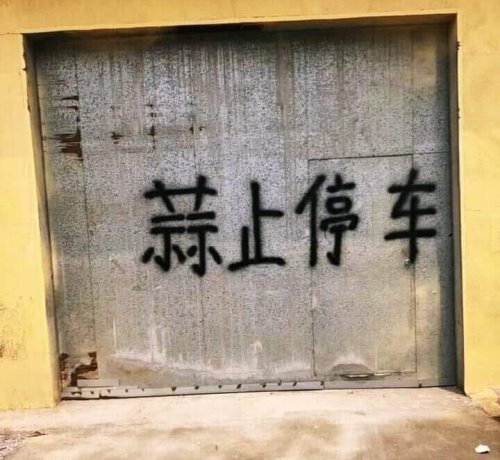 蒜止停车